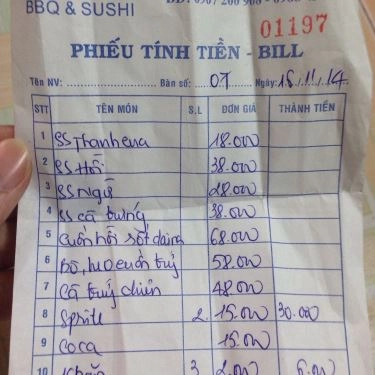 BBQ & SUSHI
01197
PHIẾU TÍNH TIỀN - BILL
Tên NV: Bàn số: 07 Ngày: 18.11.14
STT TÊN MÓN S.L ĐƠN GIÁ THÀNH TIỀN
1 SS Thanh cua 18.000
2 SS Hồi 38.000
3 SS Ngừ 28.000
4 SS cá trứng 38.000
5 Cuốn hồi sốt 68.000
6 Bò, cuốn 58.000
7 Cá trứng chiên 48.000
8 Sprite 2 15.000 30.000
9 Coca 15.000
10 Khăn 3 2.000 6.000